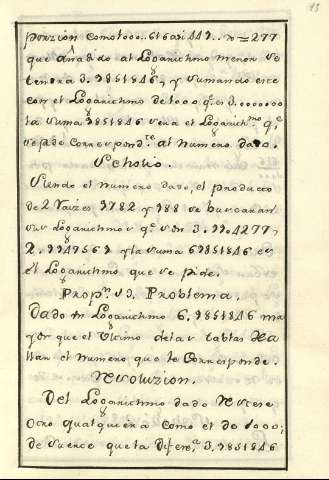 porzion como 1000.. 616 asi 449.. n = 277
que añadido al Logarithmo menor se
tendra 3.9851846, y sumando este
con el Logarithmo de 1000 q.e es 3.0000000
la suma 6.9851846 sera el Logarith.mo q.e
se pide correspond.te al numero dado.
Scholio.
Siendo el numero dado, el producto
de 2 Raizes 9782 y 988 se buscaran
sus Logarithmos q.e son 3.9904277 y
2.9947569 y la suma 6.9851846 es
el Logarithmo que se pide.
Prop.n 13. Problema.
Dado un Logarithmo 6.9851846 ma
yor que el ultimo de las tablas Ha
llar el numero que le corresponde.
Resoluzion.
Del Logarithmo dado restese
otro qualquiera como el de 1000;
de suerte que la Difere.a 3.9851846